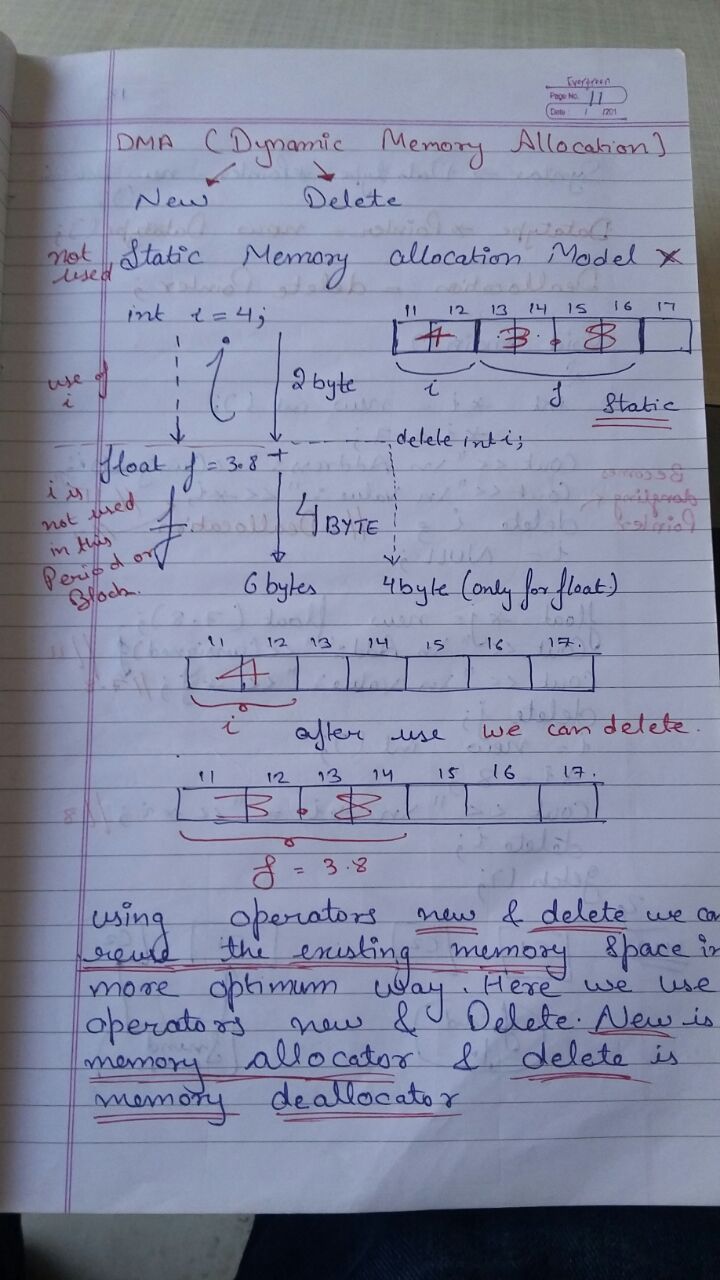 Evergreen
Page No. 11
Date: / /201
DMA (Dynamic Memory Allocation)
New Delete
not used
Static Memory allocation Model ×
int i = 4;
11 12 13 14 15 16 17
4 3 . 8
i f
Static
use of i
i
2 byte
delete int i;
float f = 3.8 +
i is not used in this Period or Block.
f
4 BYTE
6 bytes 4 byte (only for float)
11 12 13 14 15 16 17.
4
i after use we can delete.
11 12 13 14 15 16 17.
3 . 8
f = 3.8
using operators new & delete we can
the existing memory space in
more optimum way. Here we use
operators new & Delete. New is
memory allocator & delete is
memory deallocator